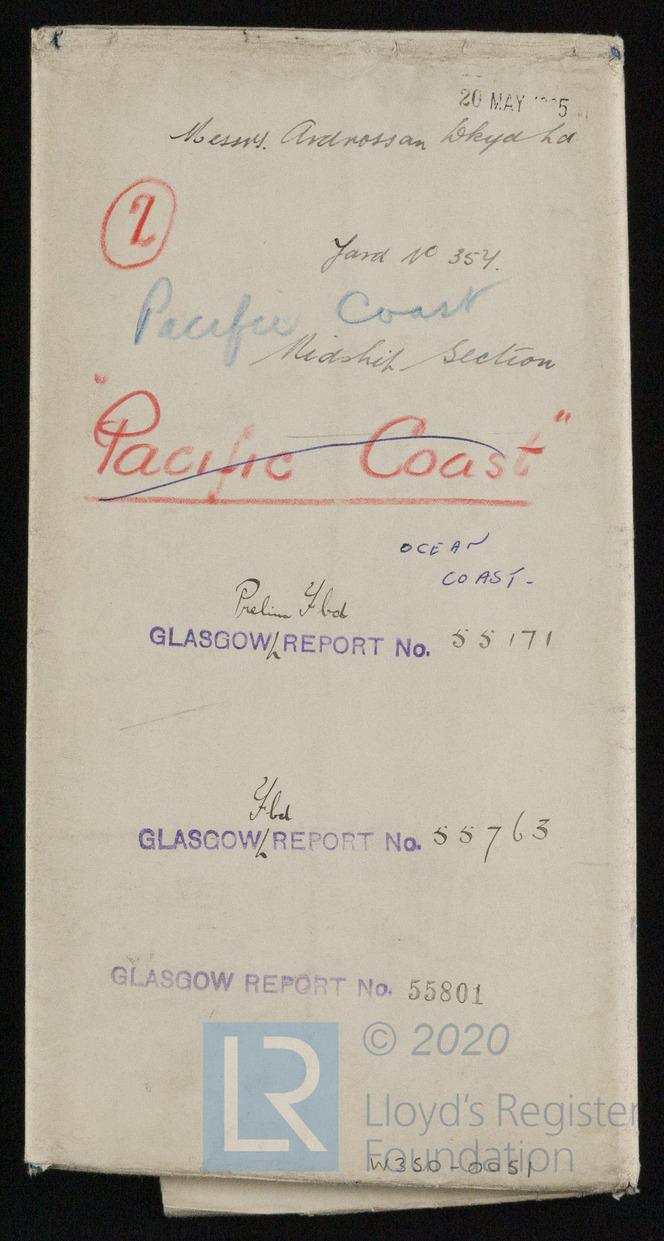 20 MAY 5
Messrs. Ardrossan Dkyd Ld
2
Yard No 357.
Pacific Coast
Midship Section
"Pacific Coast"
OCEAN
COAST-
Prelim Fbd
GLASGOW REPORT No. 55171
Fbd
GLASGOW REPORT No. 55763
GLASGOW REPORT No. 55801
LR
© 2020
Lloyd's Register
Foundation
W350-0051